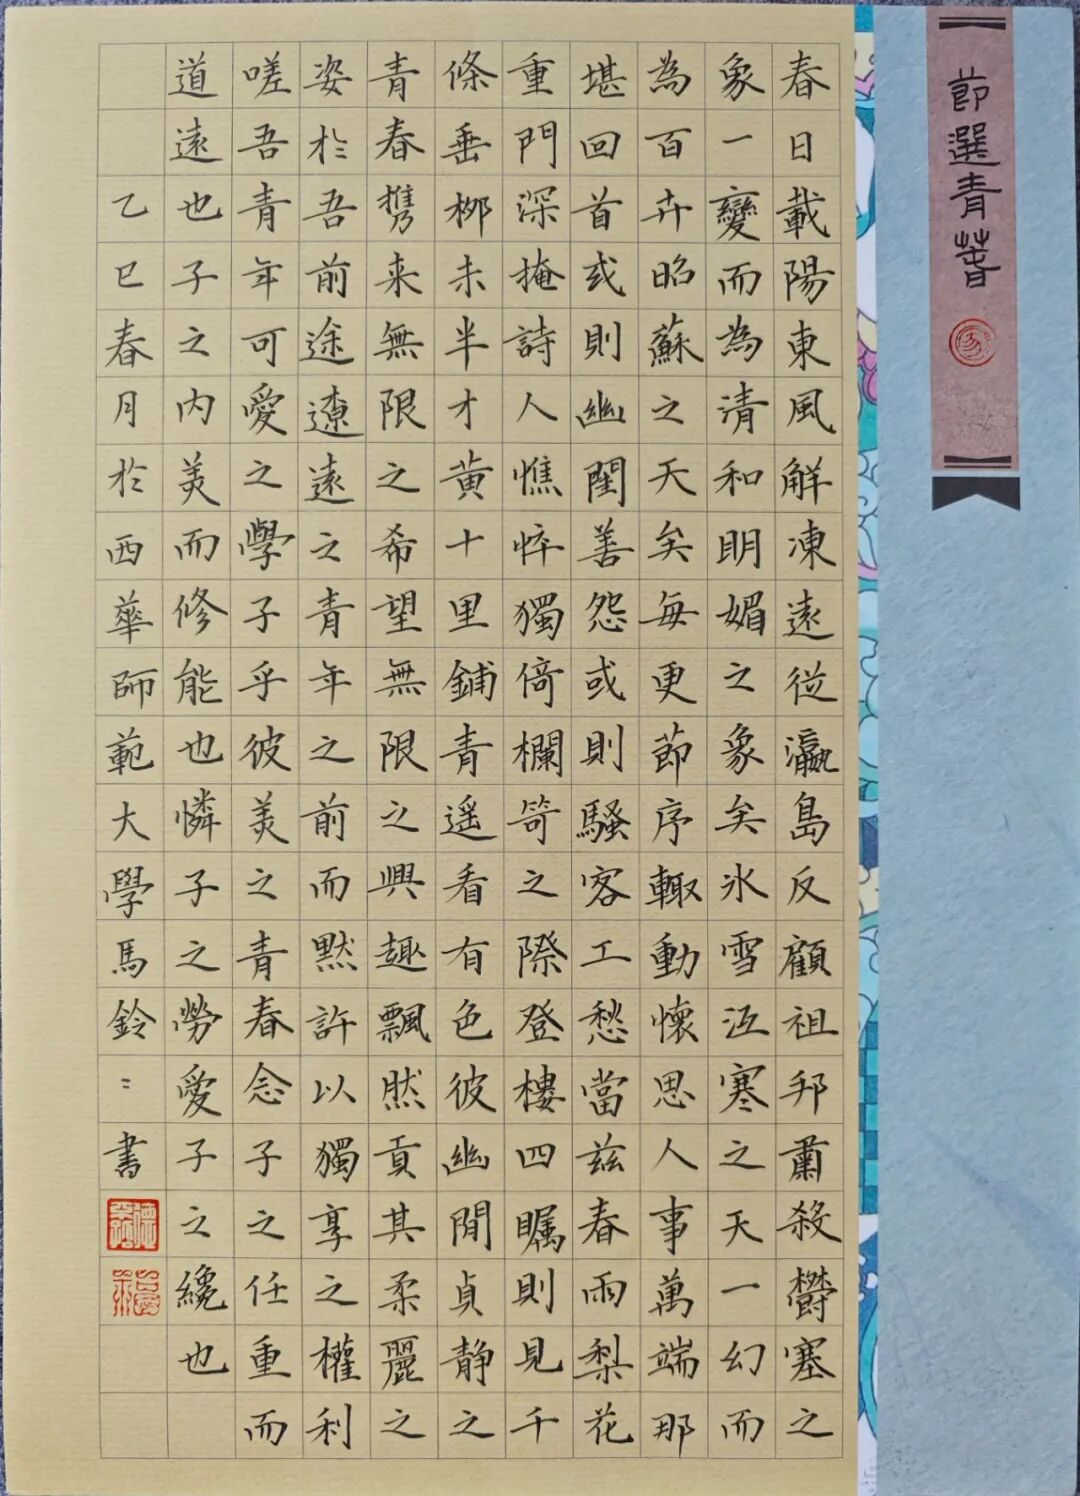 節選青春
春日載陽東風解凍遠從瀛島反顧祖邦肅殺欝塞之
象一變而為清和明媚之象矣氷雪沍寒之天一幻而
為百卉昭蘇之天矣每更節序輙動懷思人事萬端那
堪回首或則幽閨善怨或則騷客工愁當兹春雨梨花
重門深掩詩人憔悴獨倚欄笴之際登樓四矚則見千
條垂栁未半才黄十里鋪青遥看有色彼幽閒貞静之
青春携来無限之希望無限之興趣飄然貢其柔麗之
姿於吾前途遼遠之青年之前而黙許以獨享之權利
嗟吾青年可愛之學子乎彼美之青春念子之任重而
道遠也子之内美而修能也憐子之勞愛子之纔也
乙巳春月於西華師範大學馬鈴〻書